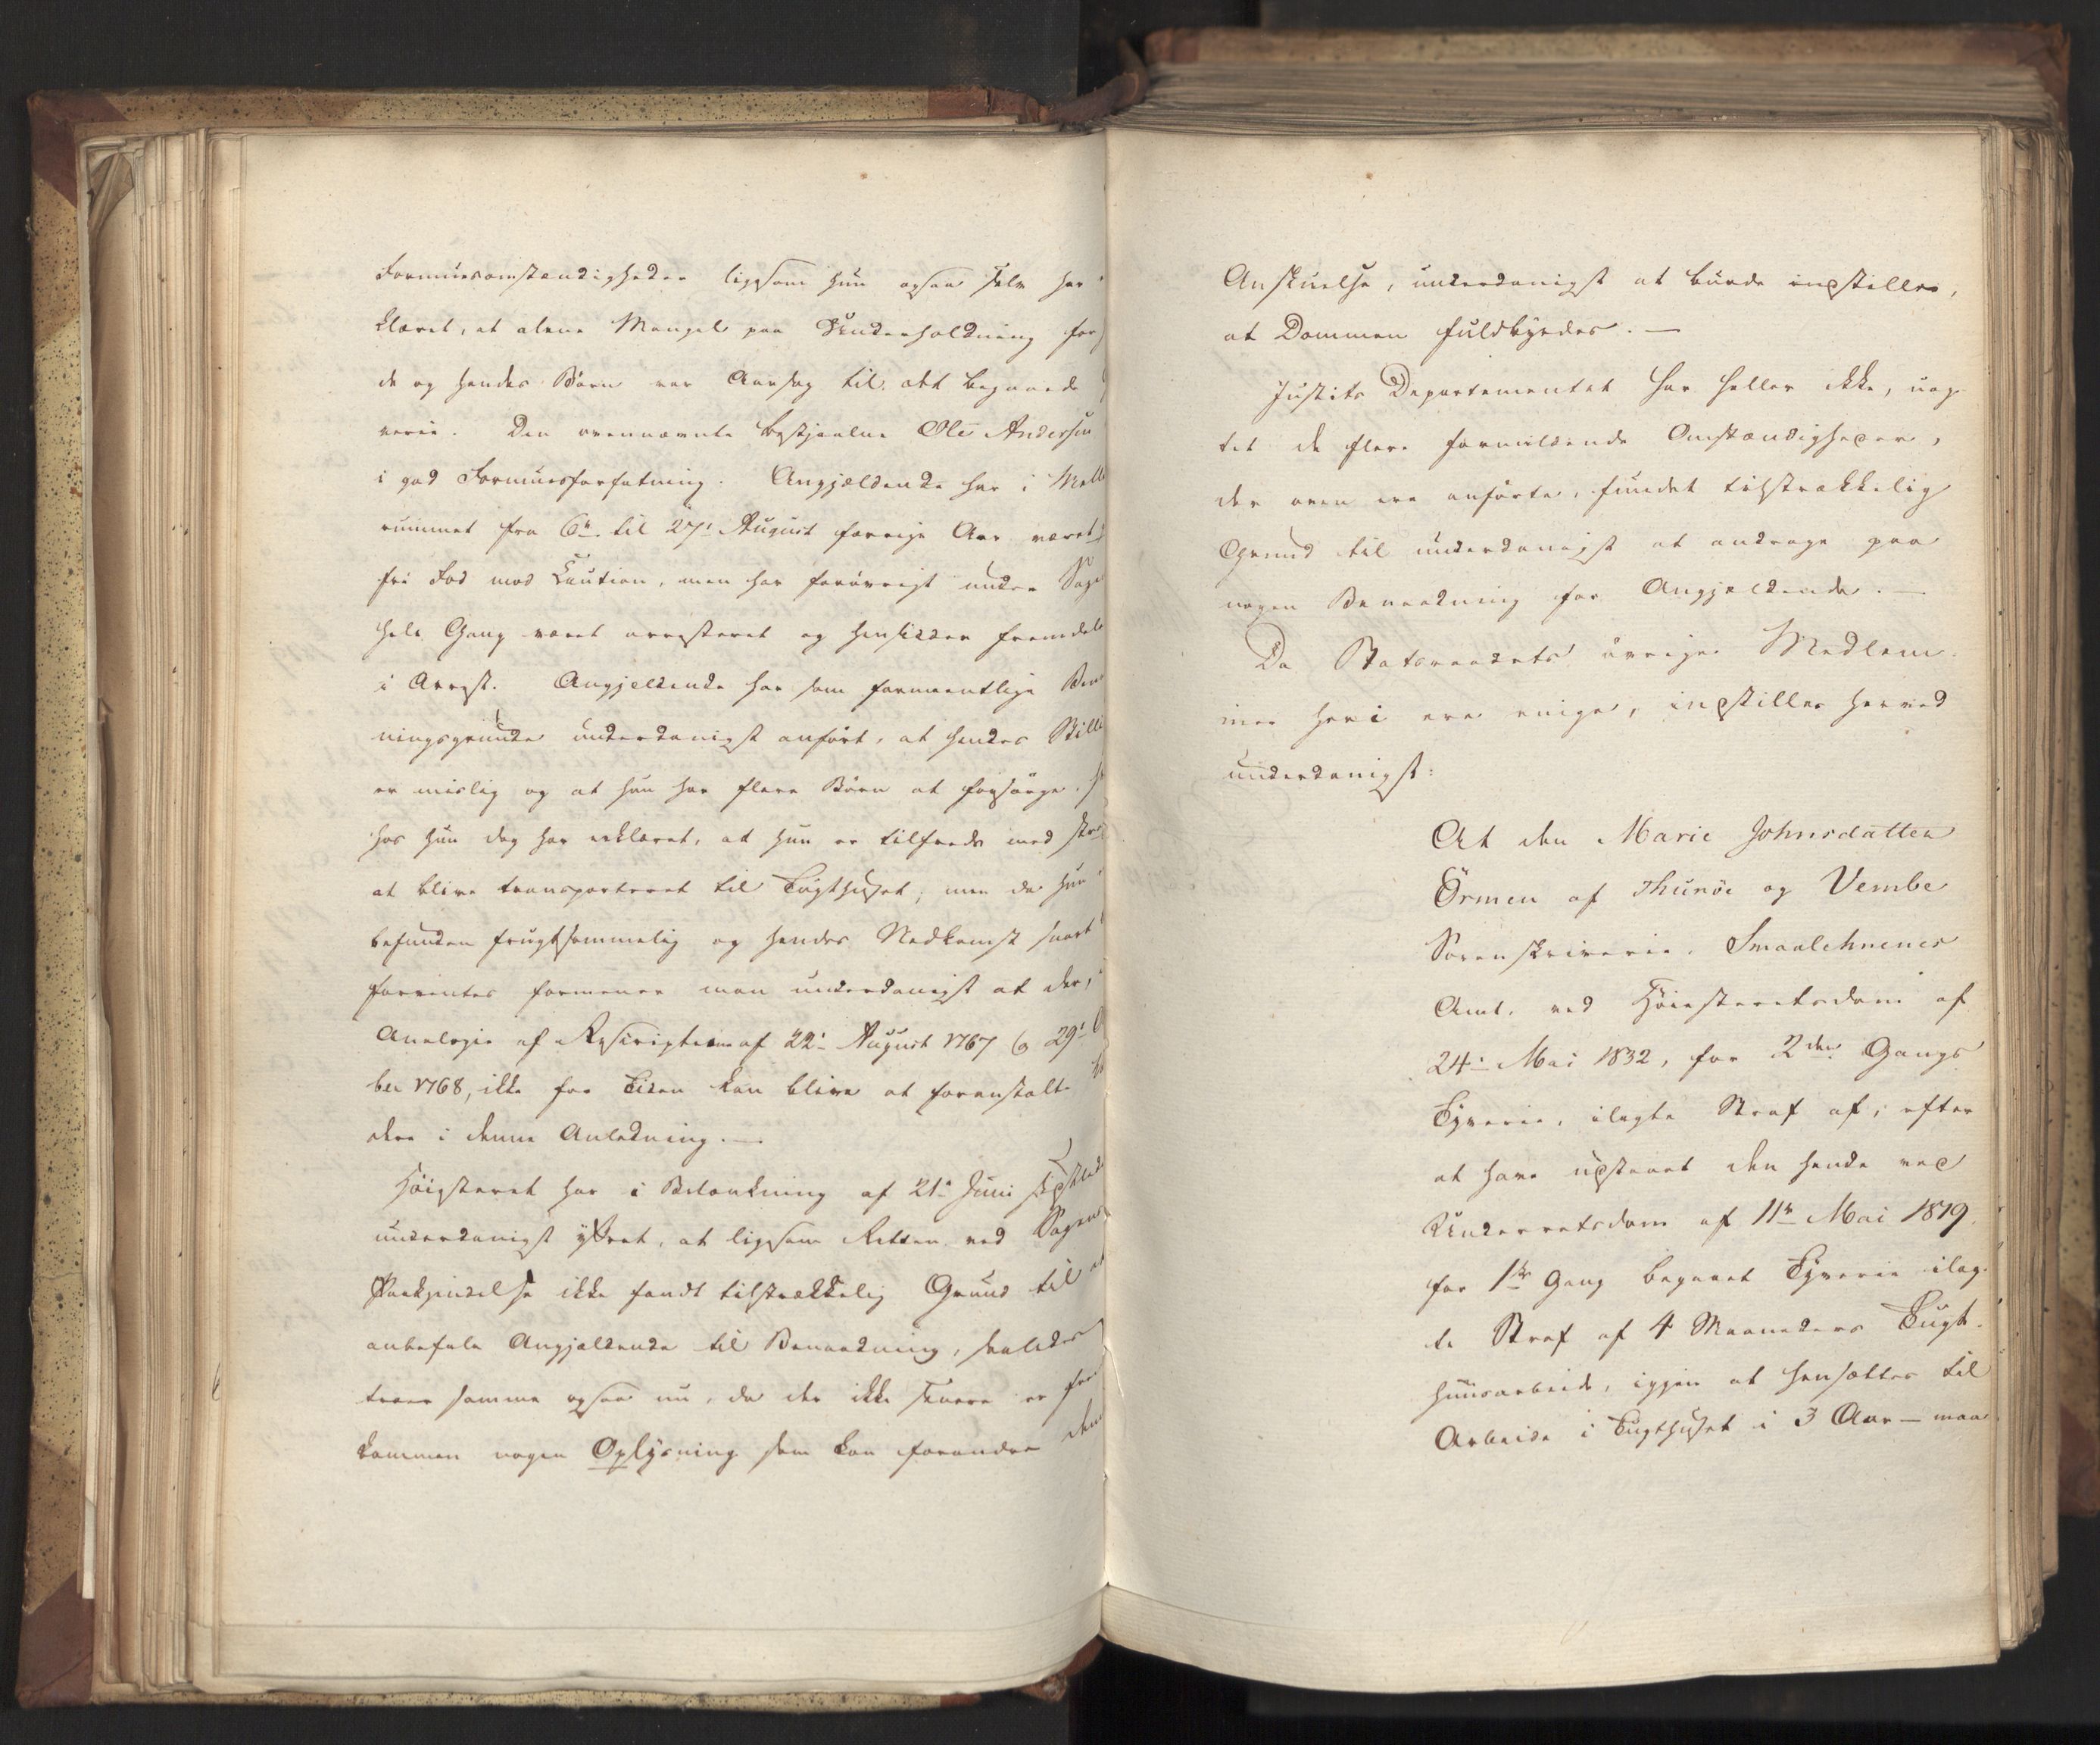 Formuesomstændigheder ligesom hun ogsaa selv har
klæret, at alene Mangel paa Underholdning for
de og hendes Børn var Aarsag til det begaaede
verie. Den ovennævnte bestjaalne Ole Andersen
i god Formuesforfatning. Angjældende har i Melle
rummet fra 6te til 27de August forrige Aar været
fri Fod mod Caution, men har forøvrigt under Sage
hele Gang været arresteret og hensidder fremdele
i Arrest. Angjeldende har som formeentlige Ben
ningsgrunde underdanigst anført, at hendes Stilli
er mislig og at hun har flere Børn at forsørge,
hos hun dog har erklæret, at hun er tilfreds med
at blive transporteret til Tugthuset; men da hun
befunden frugtsommelig og hendes Nedkomst snart
forventes formener man underdanigst at der,
Analogie af Rescripterne af 22de August 1767 og 29de
ber 1768, ikke for Tiden kan blive at foranstalte
dere i denne Anledning. —
Høiesteret har i Betænkning af 21de Juni sidstled
underdanigst yttret, at ligesom Retten ved Sagens
Paakjendelse ikke fandt tilstrækkelig Grund til at
anbefale Angjældende til Benaadning, saaledes
troer samme ogsaa nu, da der ikke senere er frem
kommen nogen Oplysning som kan forandre denne
Anskuelse, underdanigst at burde indstille,
at Dommen fuldbyrdes. —
Justits Departementet har heller ikke, uag
tet de flere formildende Omstændigheder,
der oven ere anførte, fundet tilstrækkelig
Grund til underdanigst at andrage paa
nogen Benaadning for Angjældende. —
Da Statsraadets øvrige Medlem
mer heri ere enige, indstilles herved
underdanigst:
At den Marie Johnsdatter
Örmen af Thunöe og Vembe
Sorenskriverie, Smaalehnenes
Amt, ved Høiesteretsdom af
24de Mai 1832, for 2den Gangs
Tyverie, ilagte Straf af, efter
at have udstaaet den hende ved
Underretsdom af 11te Mai 1819
for 1ste Gang begaaet Tyverie ilag
te Straf af 4 Maaneders Tugt
huusarbeide, igjen at hensættes til
Arbeide i Tugthuset i 3 Aar — maa